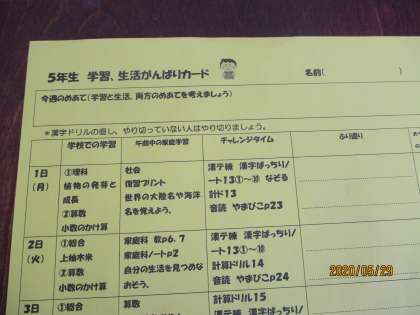 5年生 学習、生活がんばりカード
名前(
今週のめあて(学習と生活、両方のめあてを考えましょう)
*漢字ドリルの直し、やり切っていない人はやり切りましょう。
学校での学習
午前中の家庭学習
チャレンジタイム
ふり返り
1日
(月)
①理科
植物の発芽と
成長
②算数
小数のかけ算
社会
復習プリント
世界の大陸名や海洋
名を覚えよう。
漢テ練 漢字ばっちりノ
ート13①~⑩ なぞる
計ド13
音読 やまびこp23
2日
(火)
①総合
上柚木米
②算数
小数のかけ算
家庭科 教p6,7
家庭科ノートp2
自分の生活を見つめな
おそう。
漢テ練 漢字ばっちりノ
ート13①~⑩
計算ドリル14
音読 やまびこp24
3日
①総合
算数
計算ドリル15
2020/05/29